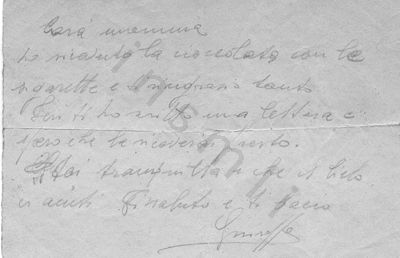 Cara mamma
ho ricevuto la cioccolata con le
sigarette e ti ringrazio tanto
Ieri ti ho scritto una lettera e
spero che la riceverai presto.
Stai tranquilla e che il cielo
ci aiuti Ti saluto e ti bacio